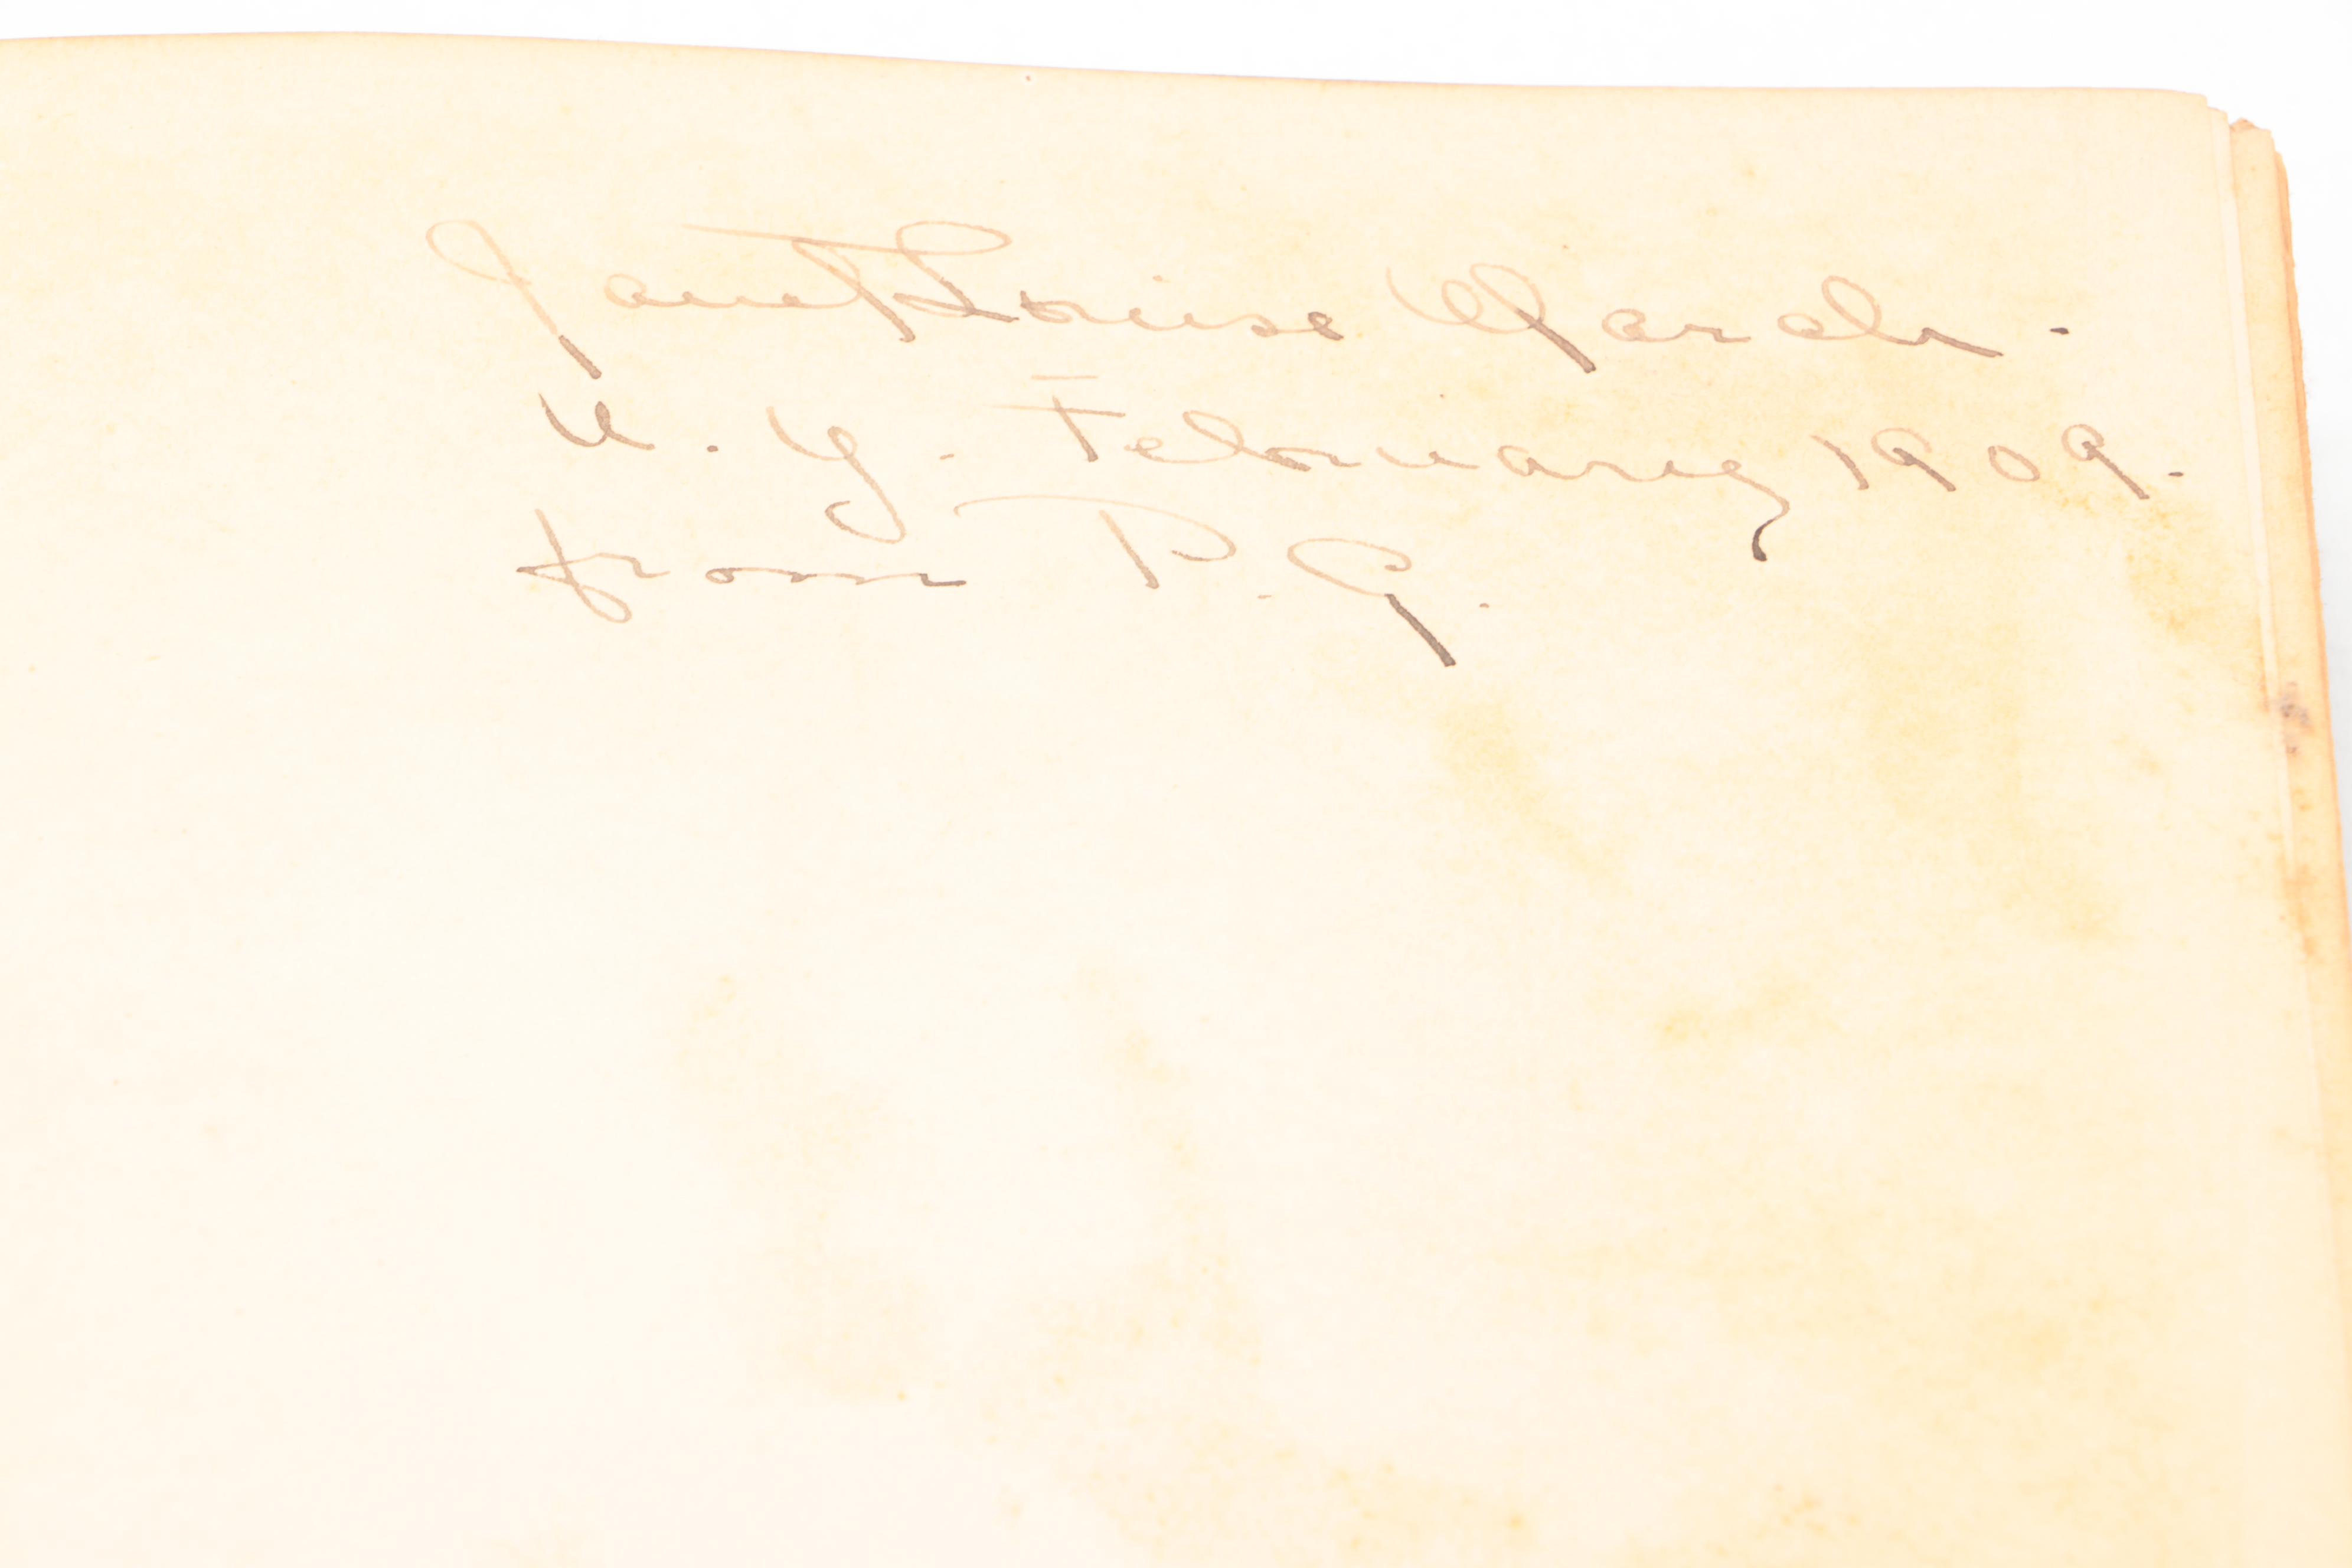 Janet Louise March.
N. Y. February 1909.
from P. G.